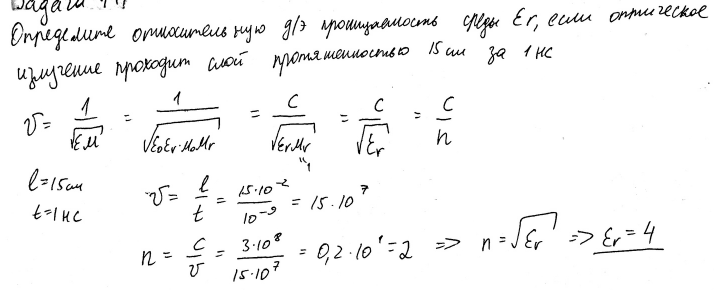 Задача
Определите относительную д/э проницаемость среды εr, если оптическое
излучение проходит слой протяженностью 15 см за 1 нс
v = 1/√(εμ) = 1/√(ε0εr·μ0μr) = c/√(εrμr) = c/√εr = c/n
"1
l=15см
t=1нс
v = l/t = 15·10^-2/10^-9 = 15·10^7
n = c/v = 3·10^8/15·10^7 = 0,2·10^1 = 2 => n = √εr => εr = 4